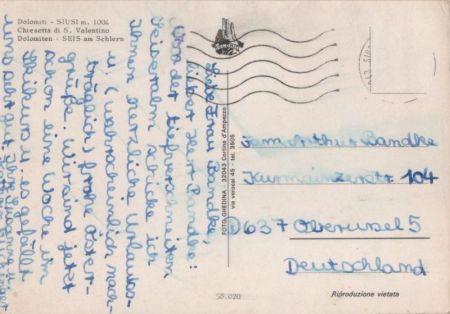 Dolomiti - SIUSI m. 1004
Chiesetta di S. Valentino
Dolomiten - SEIS am Schlern
Liebe Frau
lieber Herr Bandke!
Von der tiefverschneiten
Seiseralm schicke ich
Ihnen herzliche Urlaubs-
u. (wahrscheinlich nach-
träglich) frohe Oster-
grüße. Wir sind jetzt
schon eine Woche im
Skikurs u. es gefällt
uns sehr gut. Ihre
FOTO GHEDINA - 32043 Cortina d'Ampezzo
via verocai 45 - tel. 3606
Fam. Arthur Bandke
Kurmainzerstr. 104
0637 Oberursel 5
Deutschland
58.020
Riproduzione vietata